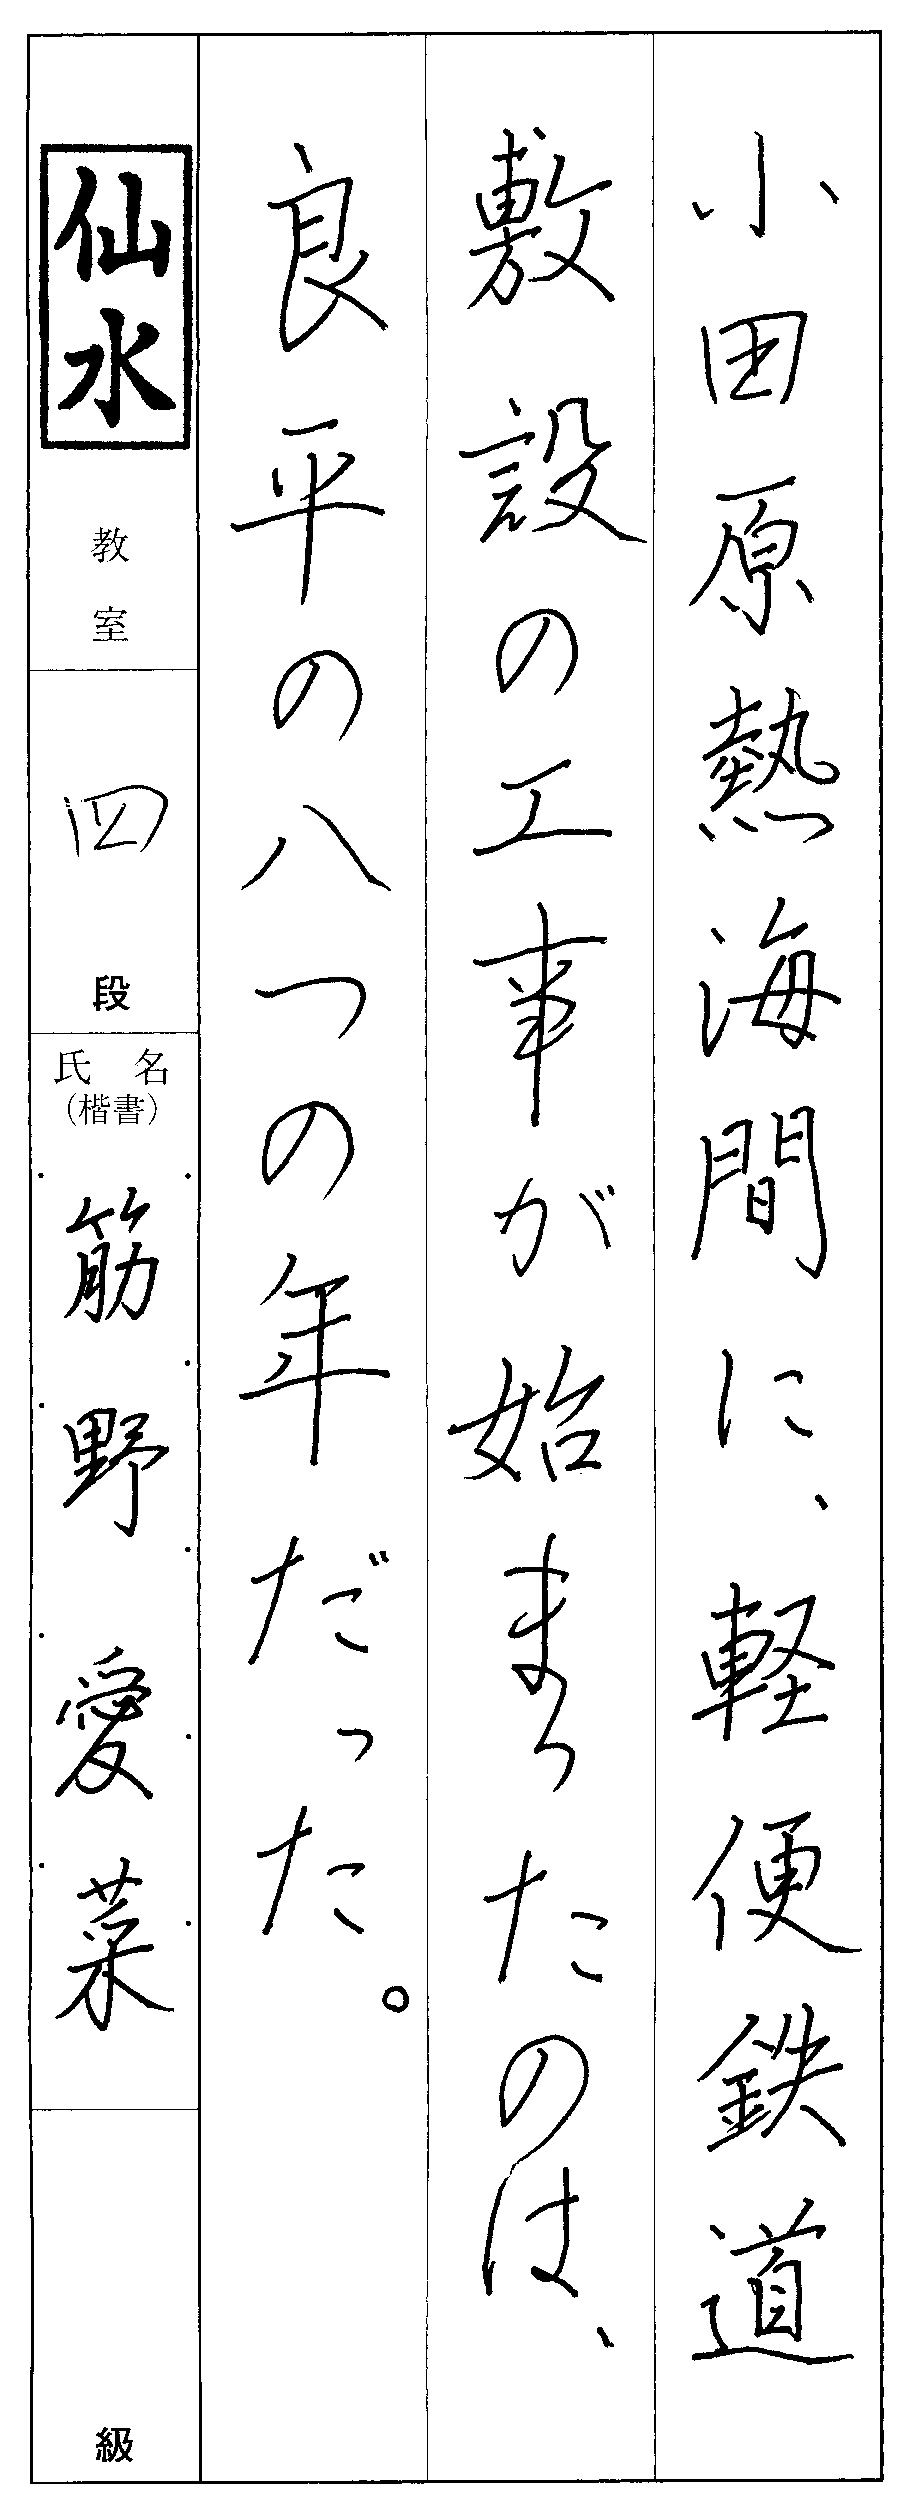 小田原熱海間に、軽便鉄道
敷設の工事が始まったのは、
良平の八つの年だった。
仙水
教室
四
段
氏名
（楷書）
筋野愛菜
級